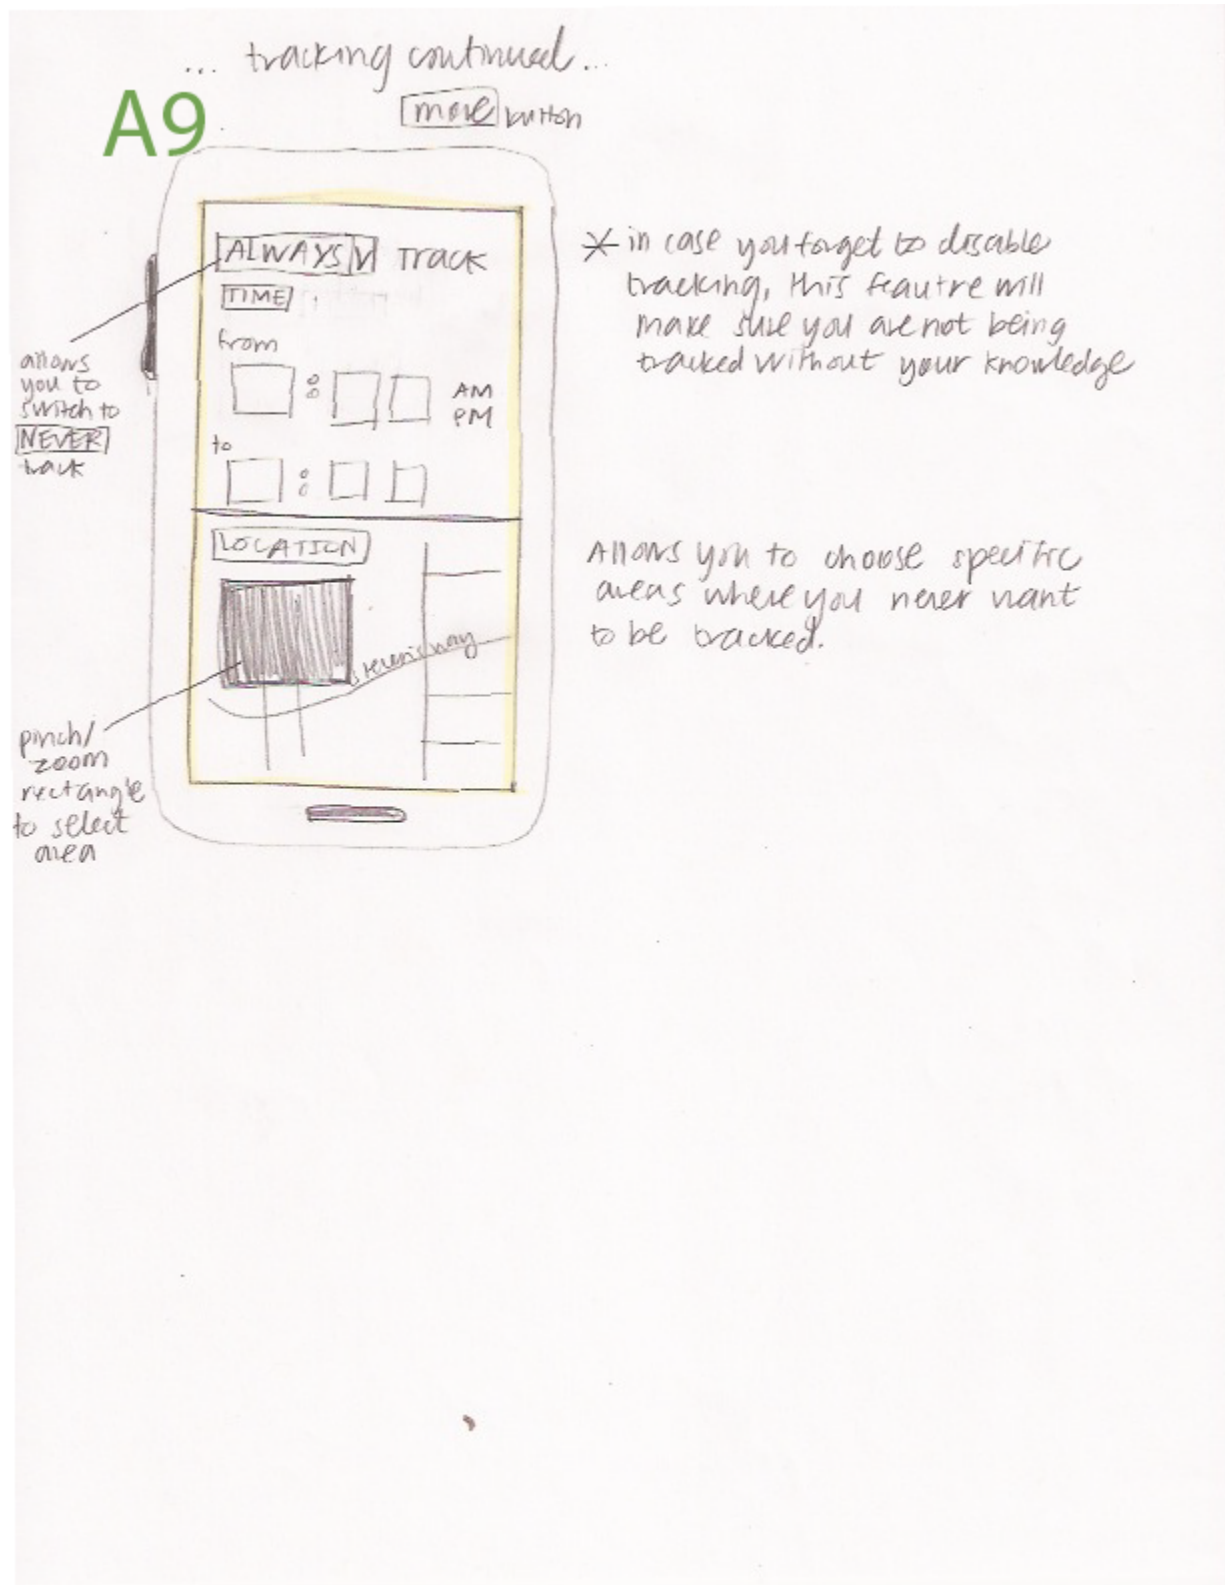 ... tracking continued...
A9
more button
ALWAYS V Track
TIME
from
: AM
PM
to
:
LOCATION
stevens way
allows
you to
switch to
NEVER
track
pinch/
zoom
rectangle
to select
area
* in case you forget to disable
tracking, this feautre will
make sure you are not being
tracked without your knowledge
Allows you to choose specific
areas where you never want
to be tracked.